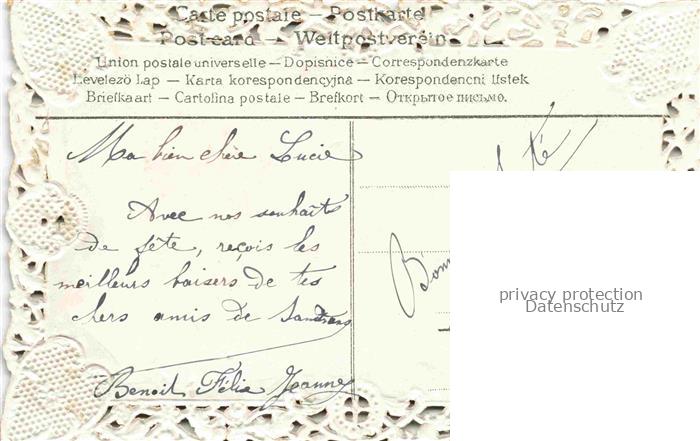 Carte postale — Postkarte
Postcard — Weltpostverein
Union postale universelle — Dopisnice — Correspondenzkarte
Levelező Lap — Karta korespondencyjna — Korespondencni listek
Briefkaart — Cartolina postale — Brefkort — Открытое письмо.
Ma bien chère Lucie
Avec nos souhaits
de fête, reçois les
meilleurs baisers de tes
chers amis de
Benoit Félix Jeanne
té
Bonn
privacy protection
Datenschutz